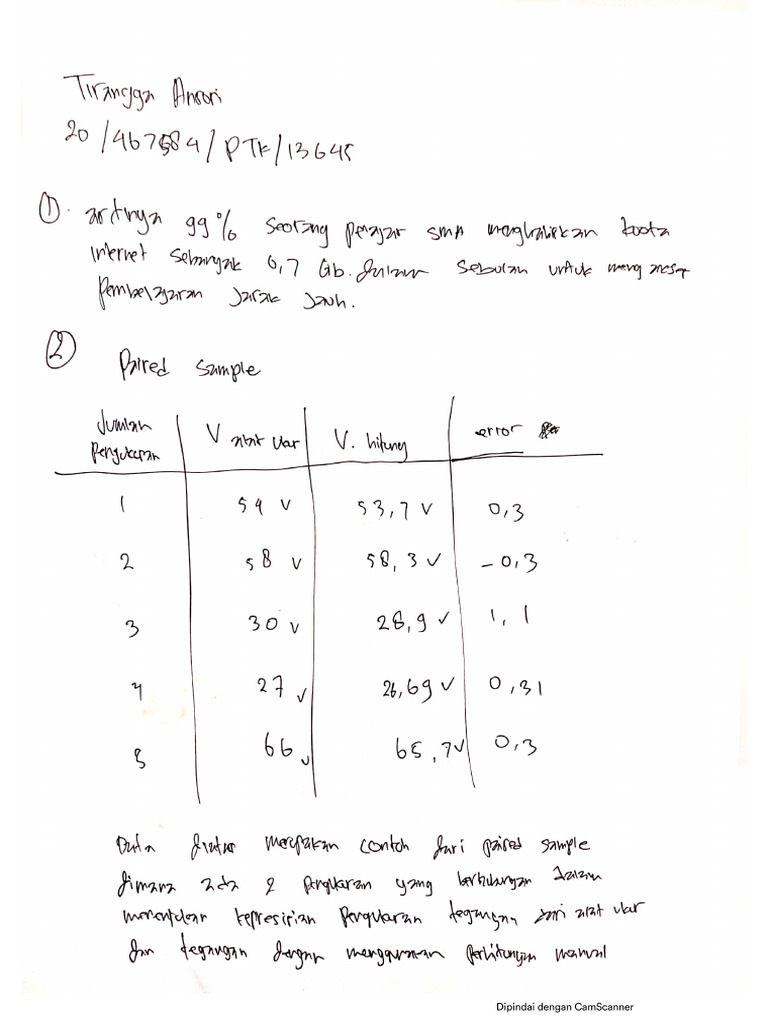 Tirangga Ansori
20/467584/PTK/13645
① artinya 99% seorang pelajar SMA menghabiskan kuota
internet sebanyak 0,7 Gb. dalam sebulan untuk mengakses
pembelajaran jarak jauh.
② Paired sample
Jumlah Pengukuran V alat ukur V. hitung error
1 54 V 53,7 V 0,3
2 58 V 58,3 V -0,3
3 30 V 28,9 V 1,1
4 27 V 26,69 V 0,31
5 66 V 65,7 V 0,3
Data diatas merupakan contoh dari paired sample
dimana ada 2 pengukuran yang berhubungan dalam
menentukan kepresisian pengukuran tegangan dari alat ukur
dan tegangan dengan menggunakan perhitungan manual
Dipindai dengan CamScanner